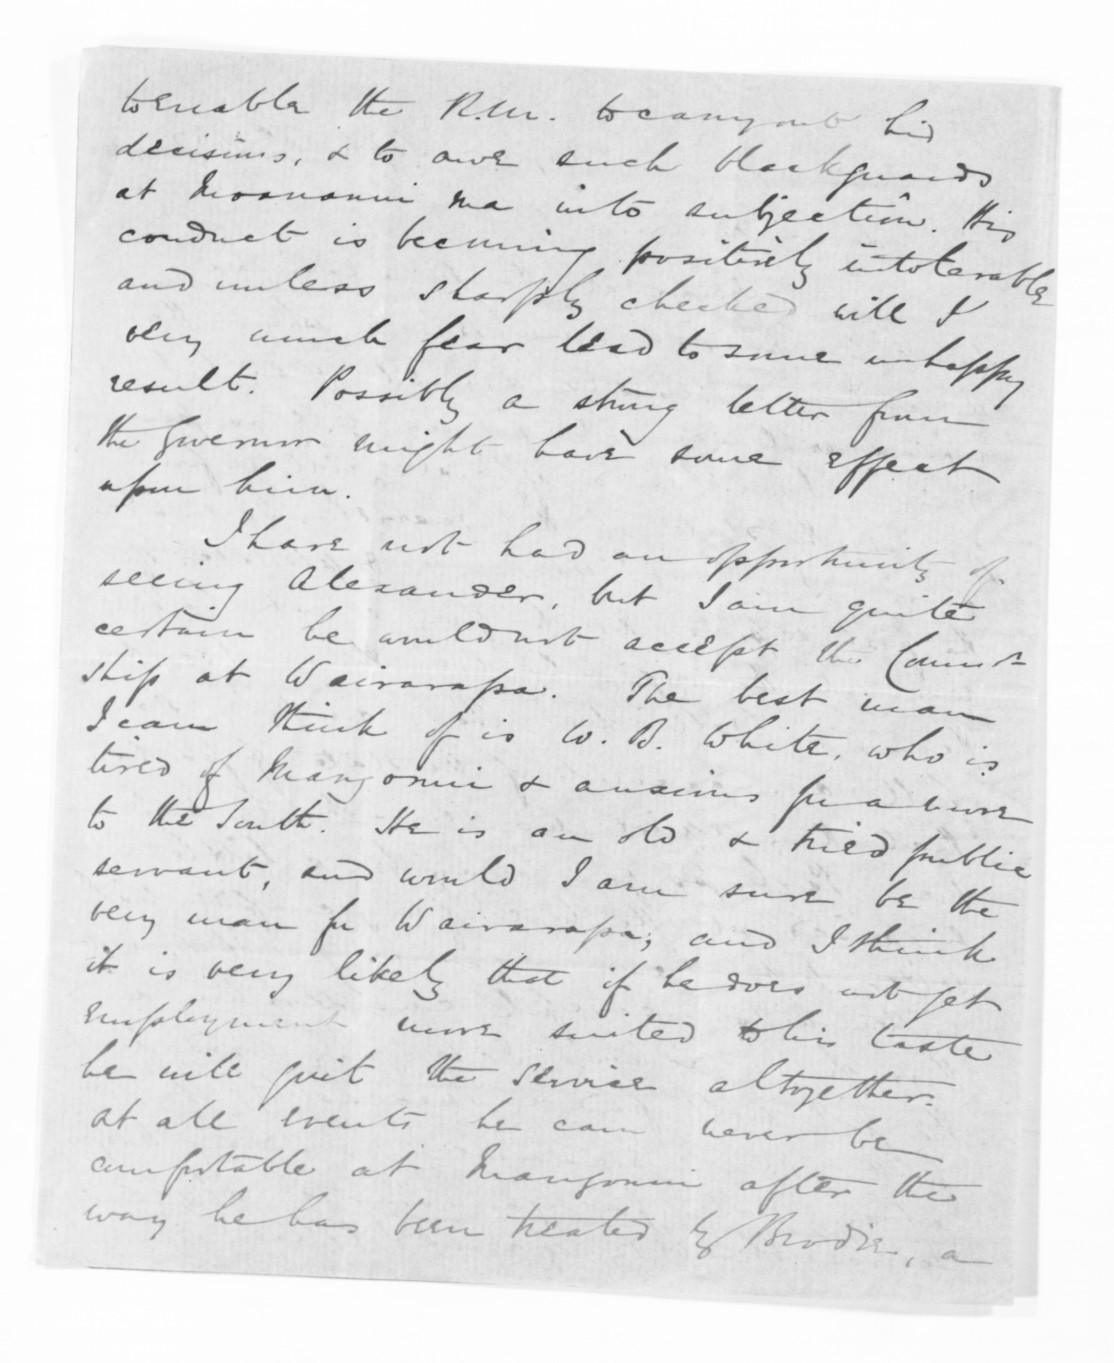 to enable the R.M. to carry out his
decisions, & to awe such blackguards
as Moananui ma into subjection. His
conduct is becoming positively intolerable
and unless sharply checked will I
very much fear lead to some unhappy
result. Possibly a strong letter from
the Governor might have some effect
upon him.
I have not had an opportunity of
seeing Alexander, but I am quite
certain he would not accept the Commr
ship at Wairarapa. The best man
I can think of is W. B. White, who is
tired of Mangonui & anxious for a move
to the South. He is an old & tried public
servant, and would I am sure be the
very man for Wairarapa; and I think
it is very likely that if he does not get
employment more suited to his taste
he will quit the service altogether.
At all events he can never be
comfortable at Mangonui after the
way he has been treated by Brodie, a